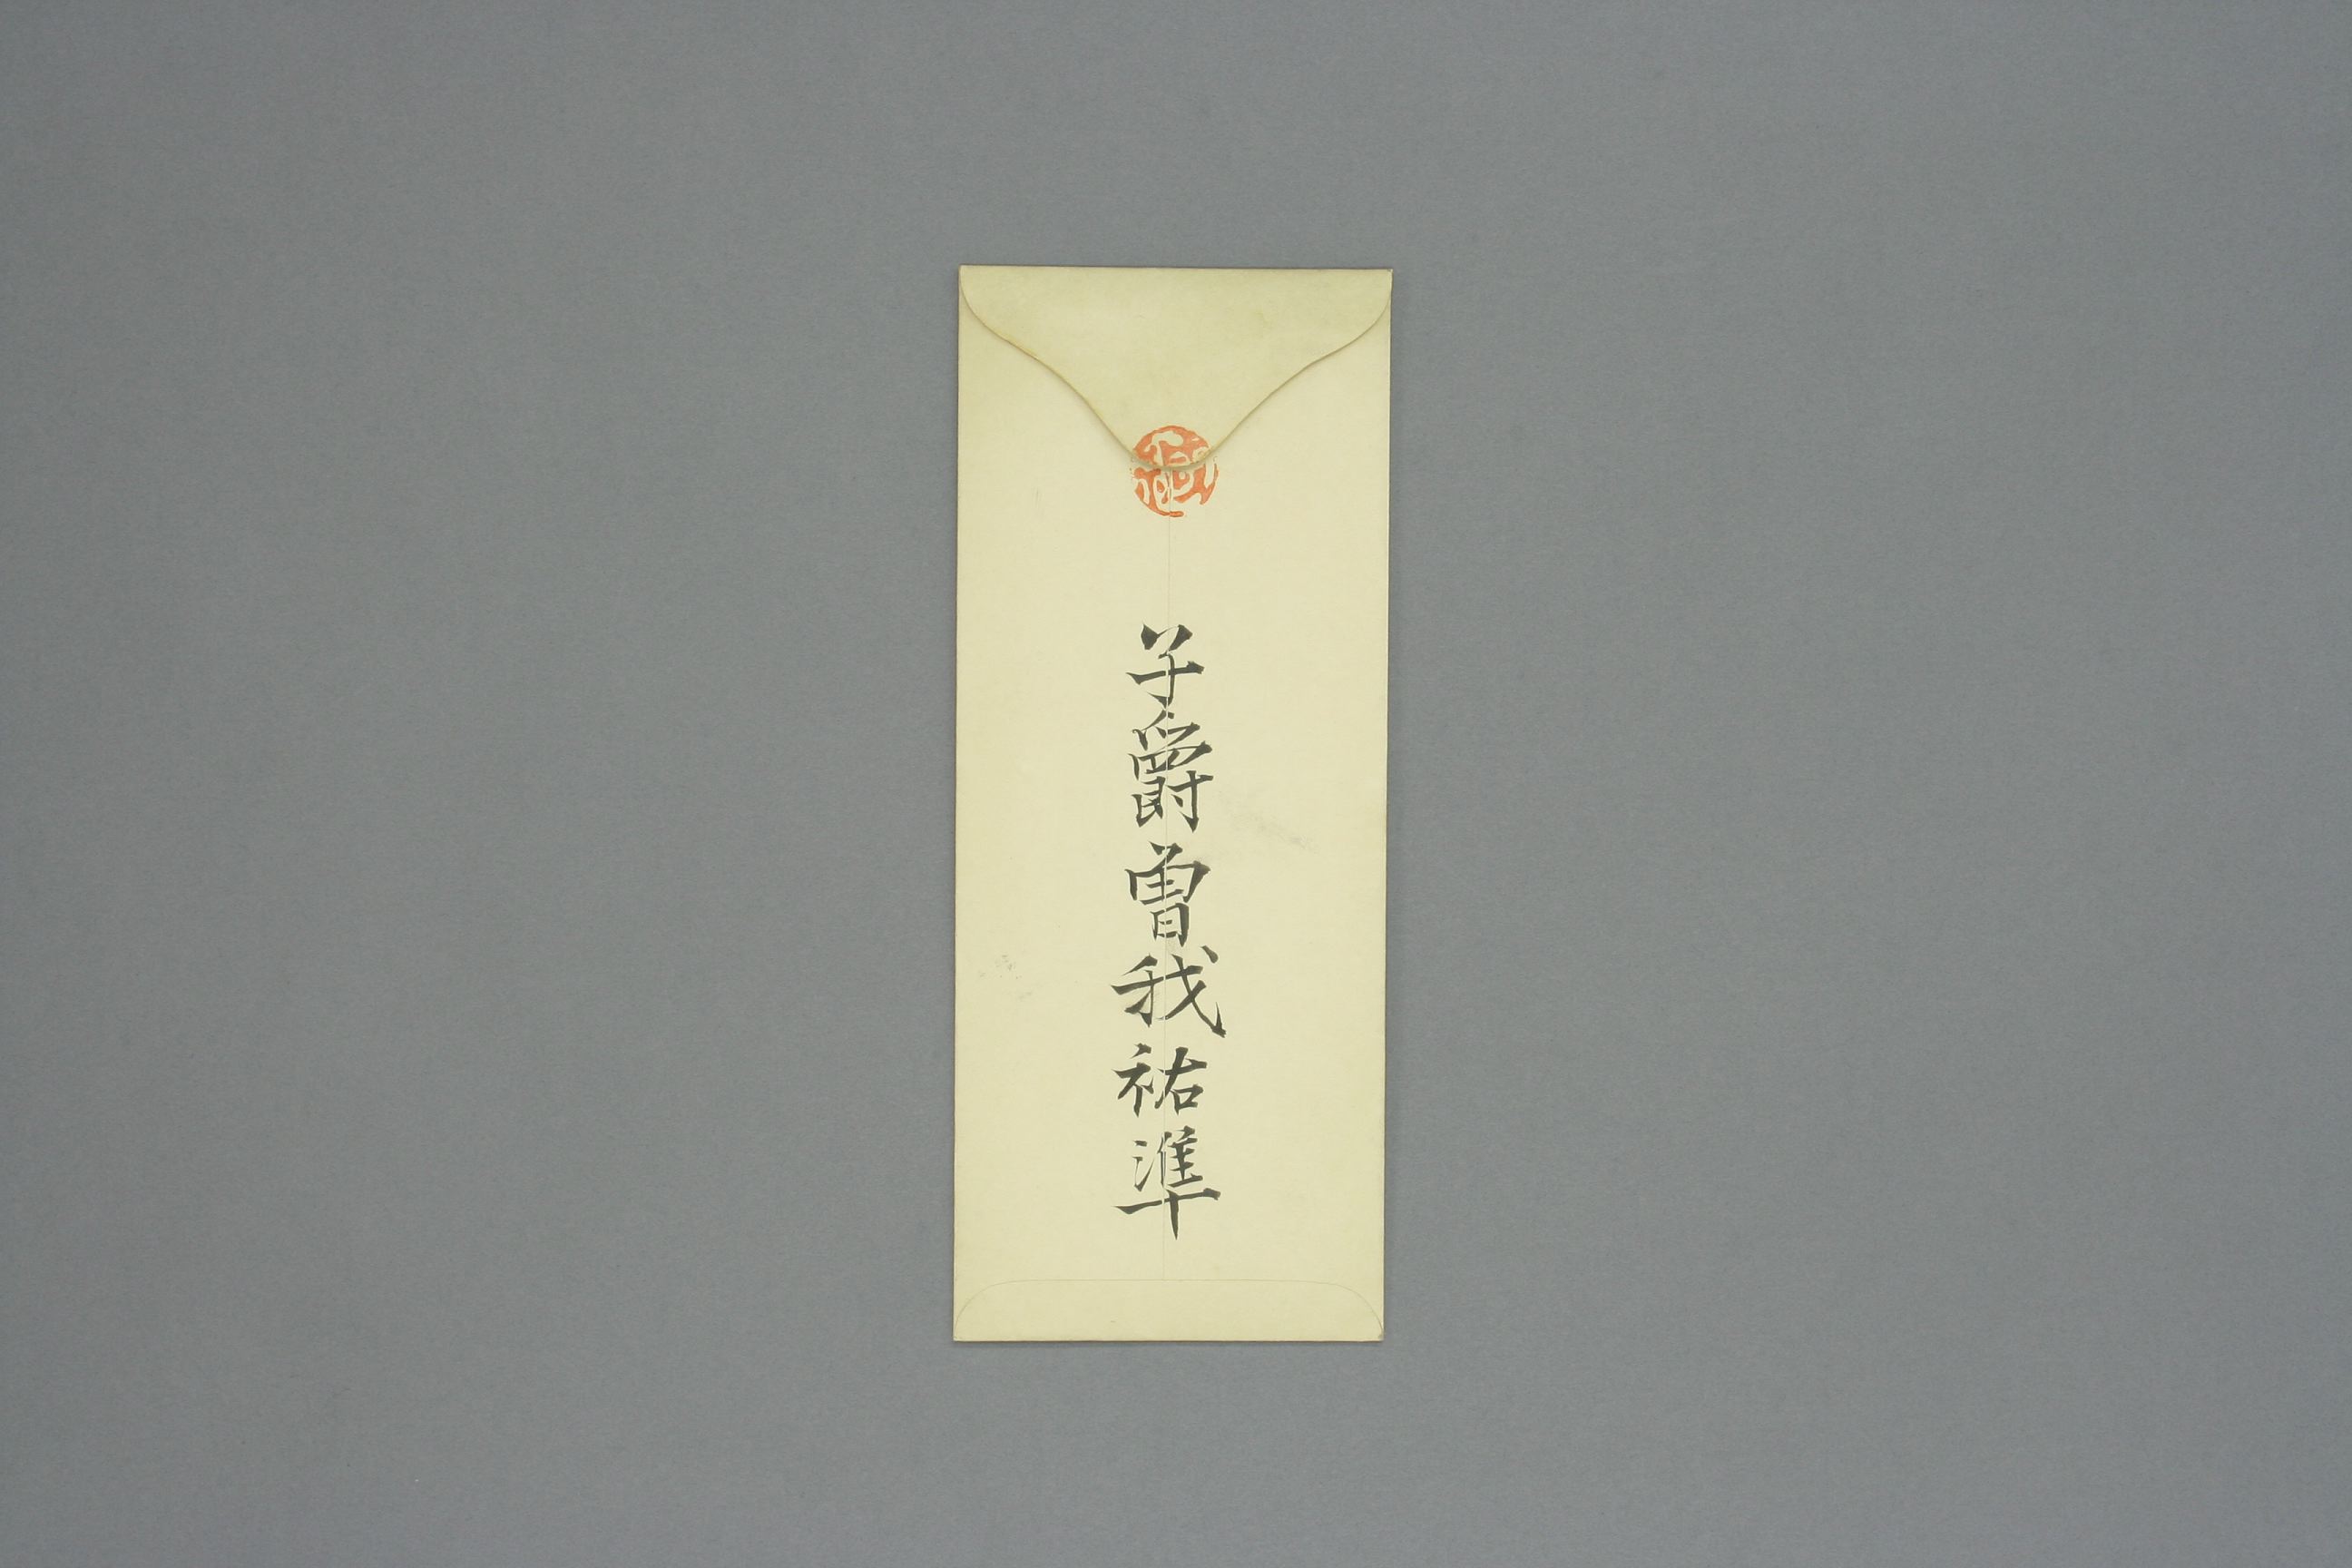 子爵曽我祐準